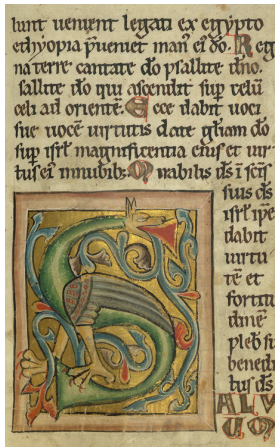 lunt uenient legati ex egypto
ethyopia pueniet man' ei do. Reg
na terre cantate do psallite dno.
sallite do qui ascendit sup celu
celi ad oriente. Ecce dabit uoci
sue uoce uirtutis date gliam do
sup isrl magnificentia eius et uir
tus ei' in nubib; Mirabilis ds i scis
suis ds
isrl ipe
dabit
uirtu
te et
fortitu
dine
plebi su
benedi
tus ds
SALVU